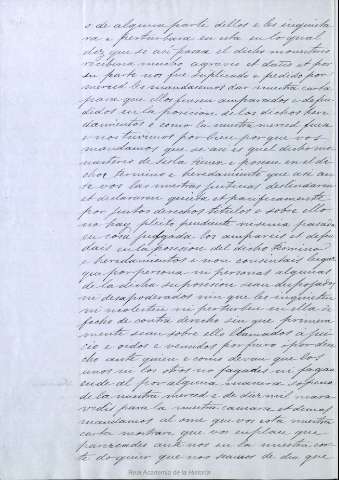 o de alguna parte dellos e les inquieta
ra e perturbara en esto en lo qual
diz que se asi pasa el dicho monesterio
recibiria mucho agravio et daño et por
su parte nos fue suplicado e pedido por
merced les mandasemos dar nuestra carta
para que ellos fuesen amparados e defen
didos en la posesion de los dichos here
damientos o como la nuestra merced fuese
e nos tuvimoslo por bien porque vos
mandamos que si asi es quel dicho mo
nesterio de tiene e posee en el di
cho termino e heredamiento que asi an
te vos las nuestras justicias deslindaron
et declararon quieta et pacificamente
por justos derechos titulos e sobre ello
no hay pleito pendiente nin cosa pasada
en cosa juzgada los ampareis et defen
dais en la posesion del dicho termino
e heredamientos e non consintais lugar
que por persona ni personas algunas
de la dicha su posesion sean despojados
ni desapoderados nin que les inquieten
ni molesten ni perturben en ella de
fecho de contra derecho sin que primera
mente sean sobre ello llamados a jui
cio e oidos e vencidos por fuero e por dere
cho ante quien e como devan que los
unos ni los otros no fagades ni fagan
ende al por alguna manera so pena
de la nuestra merced e de diez mil mara
vedis para la nuestra camara et demas
mandamos al ome que vos esta nuestra
carta mostrare que vos emplace que
parezcades ante nos en la nuestra cor
te do quier que nos seamos de dia que
Real Academia de la Historia